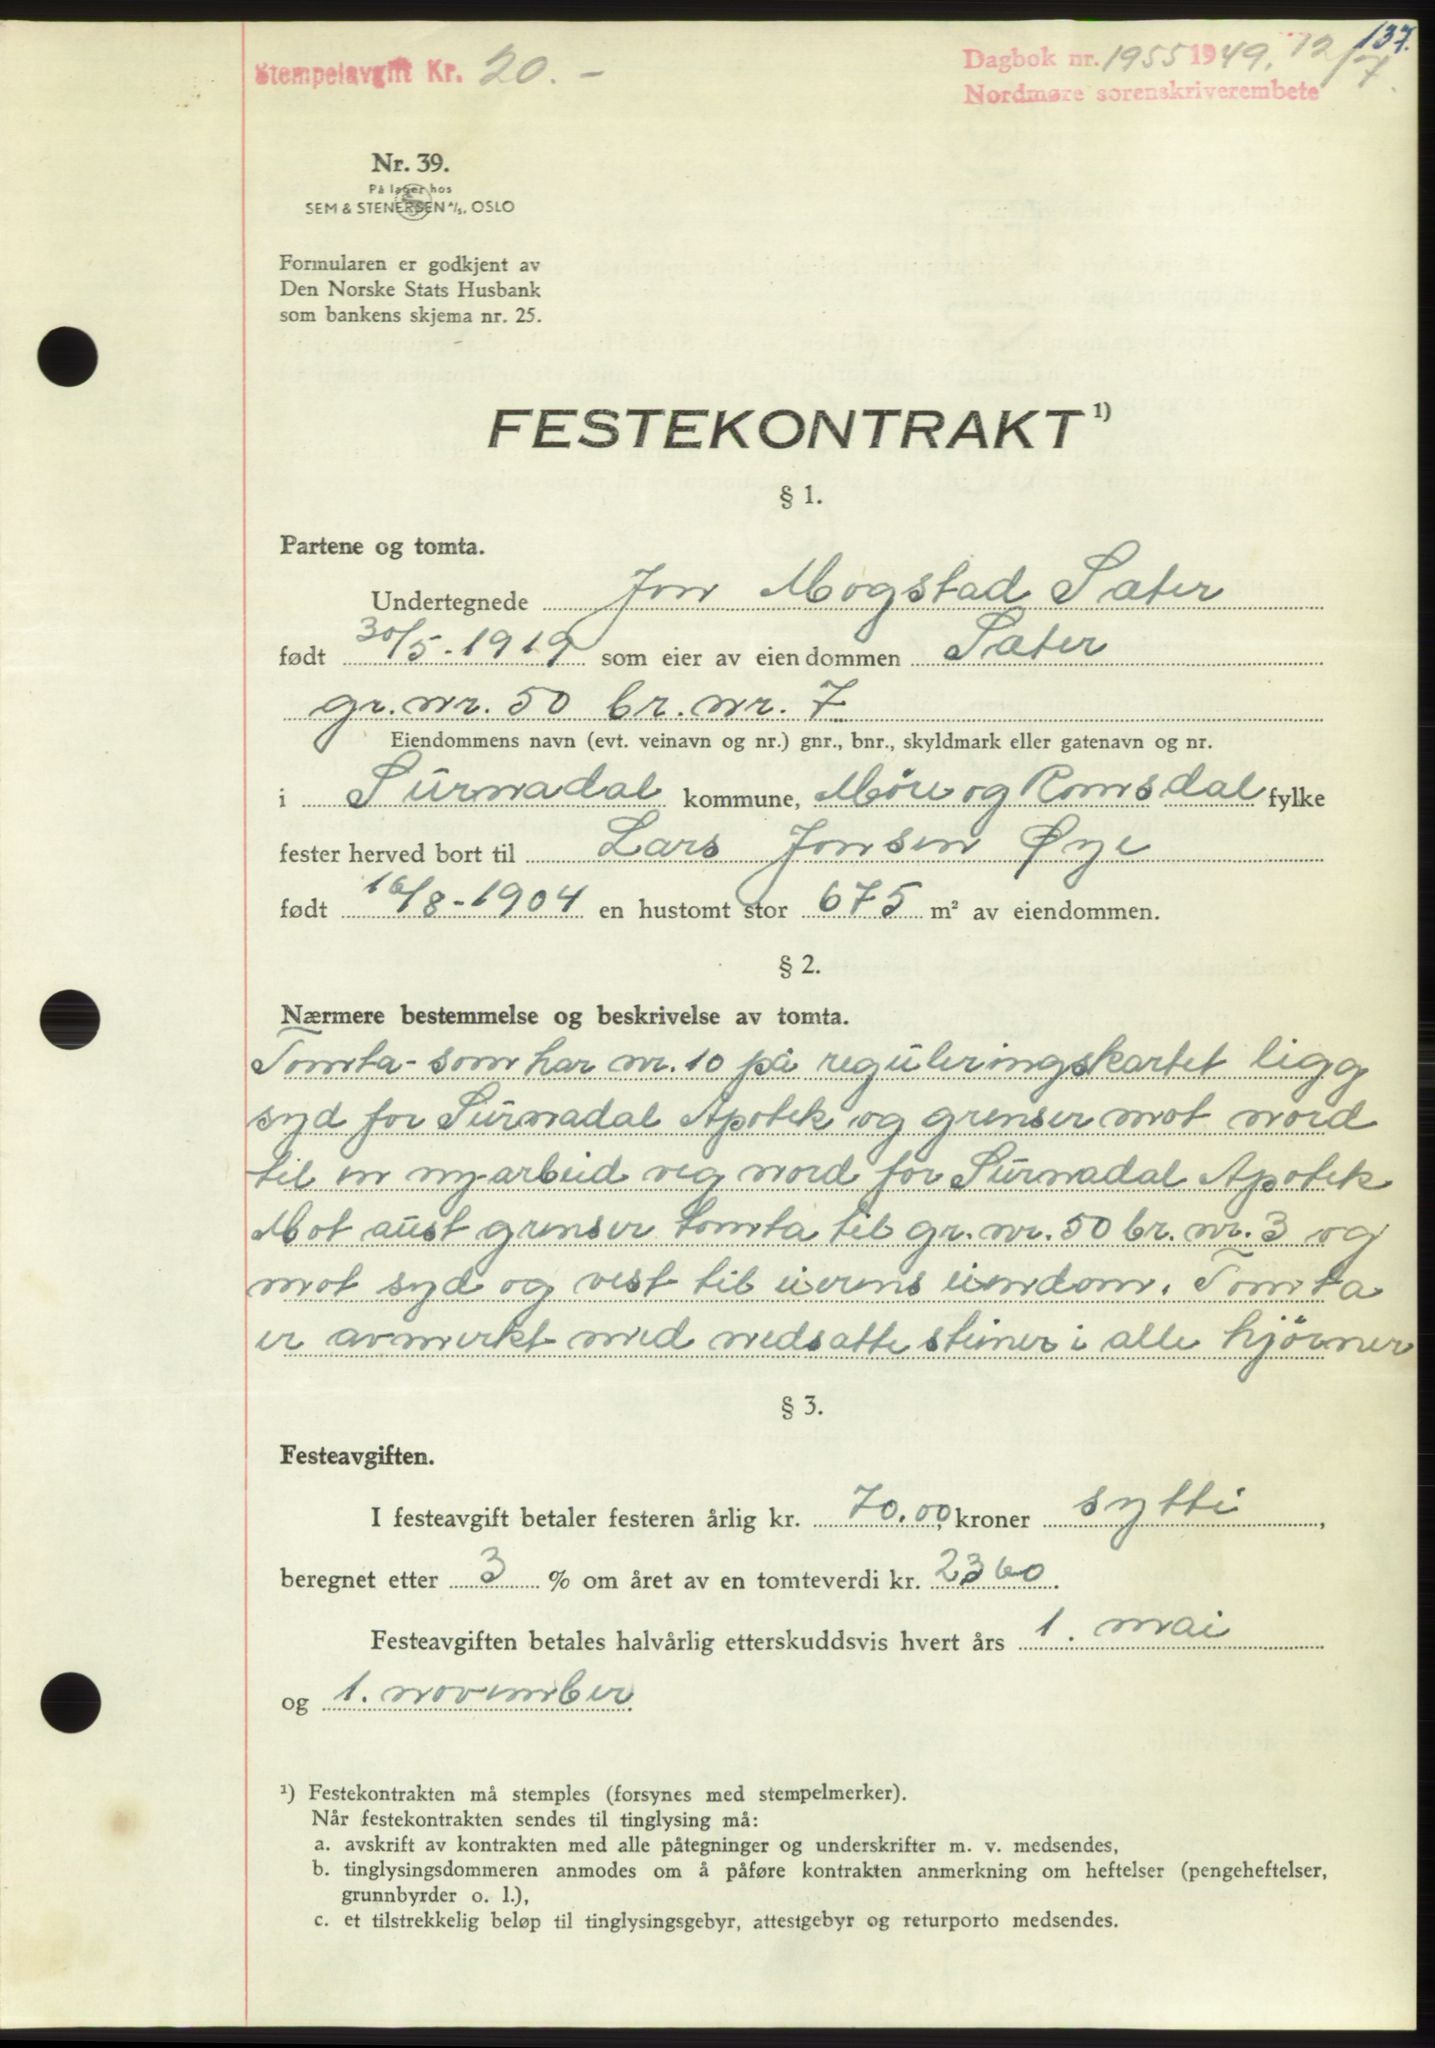 137.
Stempelavgift Kr. 20. -
Dagbok nr. 1955 1949. 12/7.
Nordmøre sorenskriverembete
Nr. 39.
På lager hos
SEM & STENERSEN A/S, OSLO
Formularen er godkjent av
Den Norske Stats Husbank
som bankens skjema nr. 25.
FESTEKONTRAKT ¹)
§ 1.
Partene og tomta.
Undertegnede Jon Mogstad Sæter
født 30/5-1919 som eier av eiendommen Sæter
gr. nr. 50 br. nr. 7
Eiendommens navn (evt. veinavn og nr.) gnr., bnr., skyldmark eller gatenavn og nr.
i Surnadal kommune, Møre og Romsdal fylke
fester herved bort til Lars Jonsen Øye
født 16/8-1904 en hustomt stor 675 m² av eiendommen.
§ 2.
Nærmere bestemmelse og beskrivelse av tomta.
Tomta - som har nr. 10 på reguleringskartet ligg
syd for Surnadal Apotek og grenser mot nord
til en ny-arbeid veg nord for Surnadal Apotek
Mot aust grenser tomta til gr. nr. 50 br. nr. 3 og
mot syd og vest til eierens eiendom. Tomta
er avmerkt med nedsatte steiner i alle hjørner
§ 3.
Festeavgiften.
I festeavgift betaler festeren årlig kr. 70.00, kroner sytti,
beregnet etter 3 % om året av en tomteverdi kr. 2360.
Festeavgiften betales halvårlig etterskuddsvis hvert års 1. mai
og 1. november.
¹) Festekontrakten må stemples (forsynes med stempelmerker).
Når festekontrakten sendes til tinglysing må:
a. avskrift av kontrakten med alle påtegninger og underskrifter m. v. medsendes,
b. tinglysingsdommeren anmodes om å påføre kontrakten anmerkning om heftelser (pengeheftelser,
grunnbyrder o. l.),
c. et tilstrekkelig beløp til tinglysingsgebyr, attestgebyr og returporto medsendes.